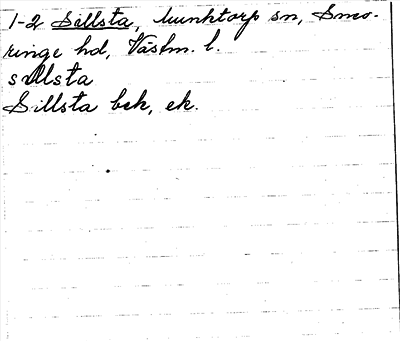 1-2 Sillsta, Munktorp sn, Snevringe hd, Västm. l.
sillsta
Sillsta bek, ek.